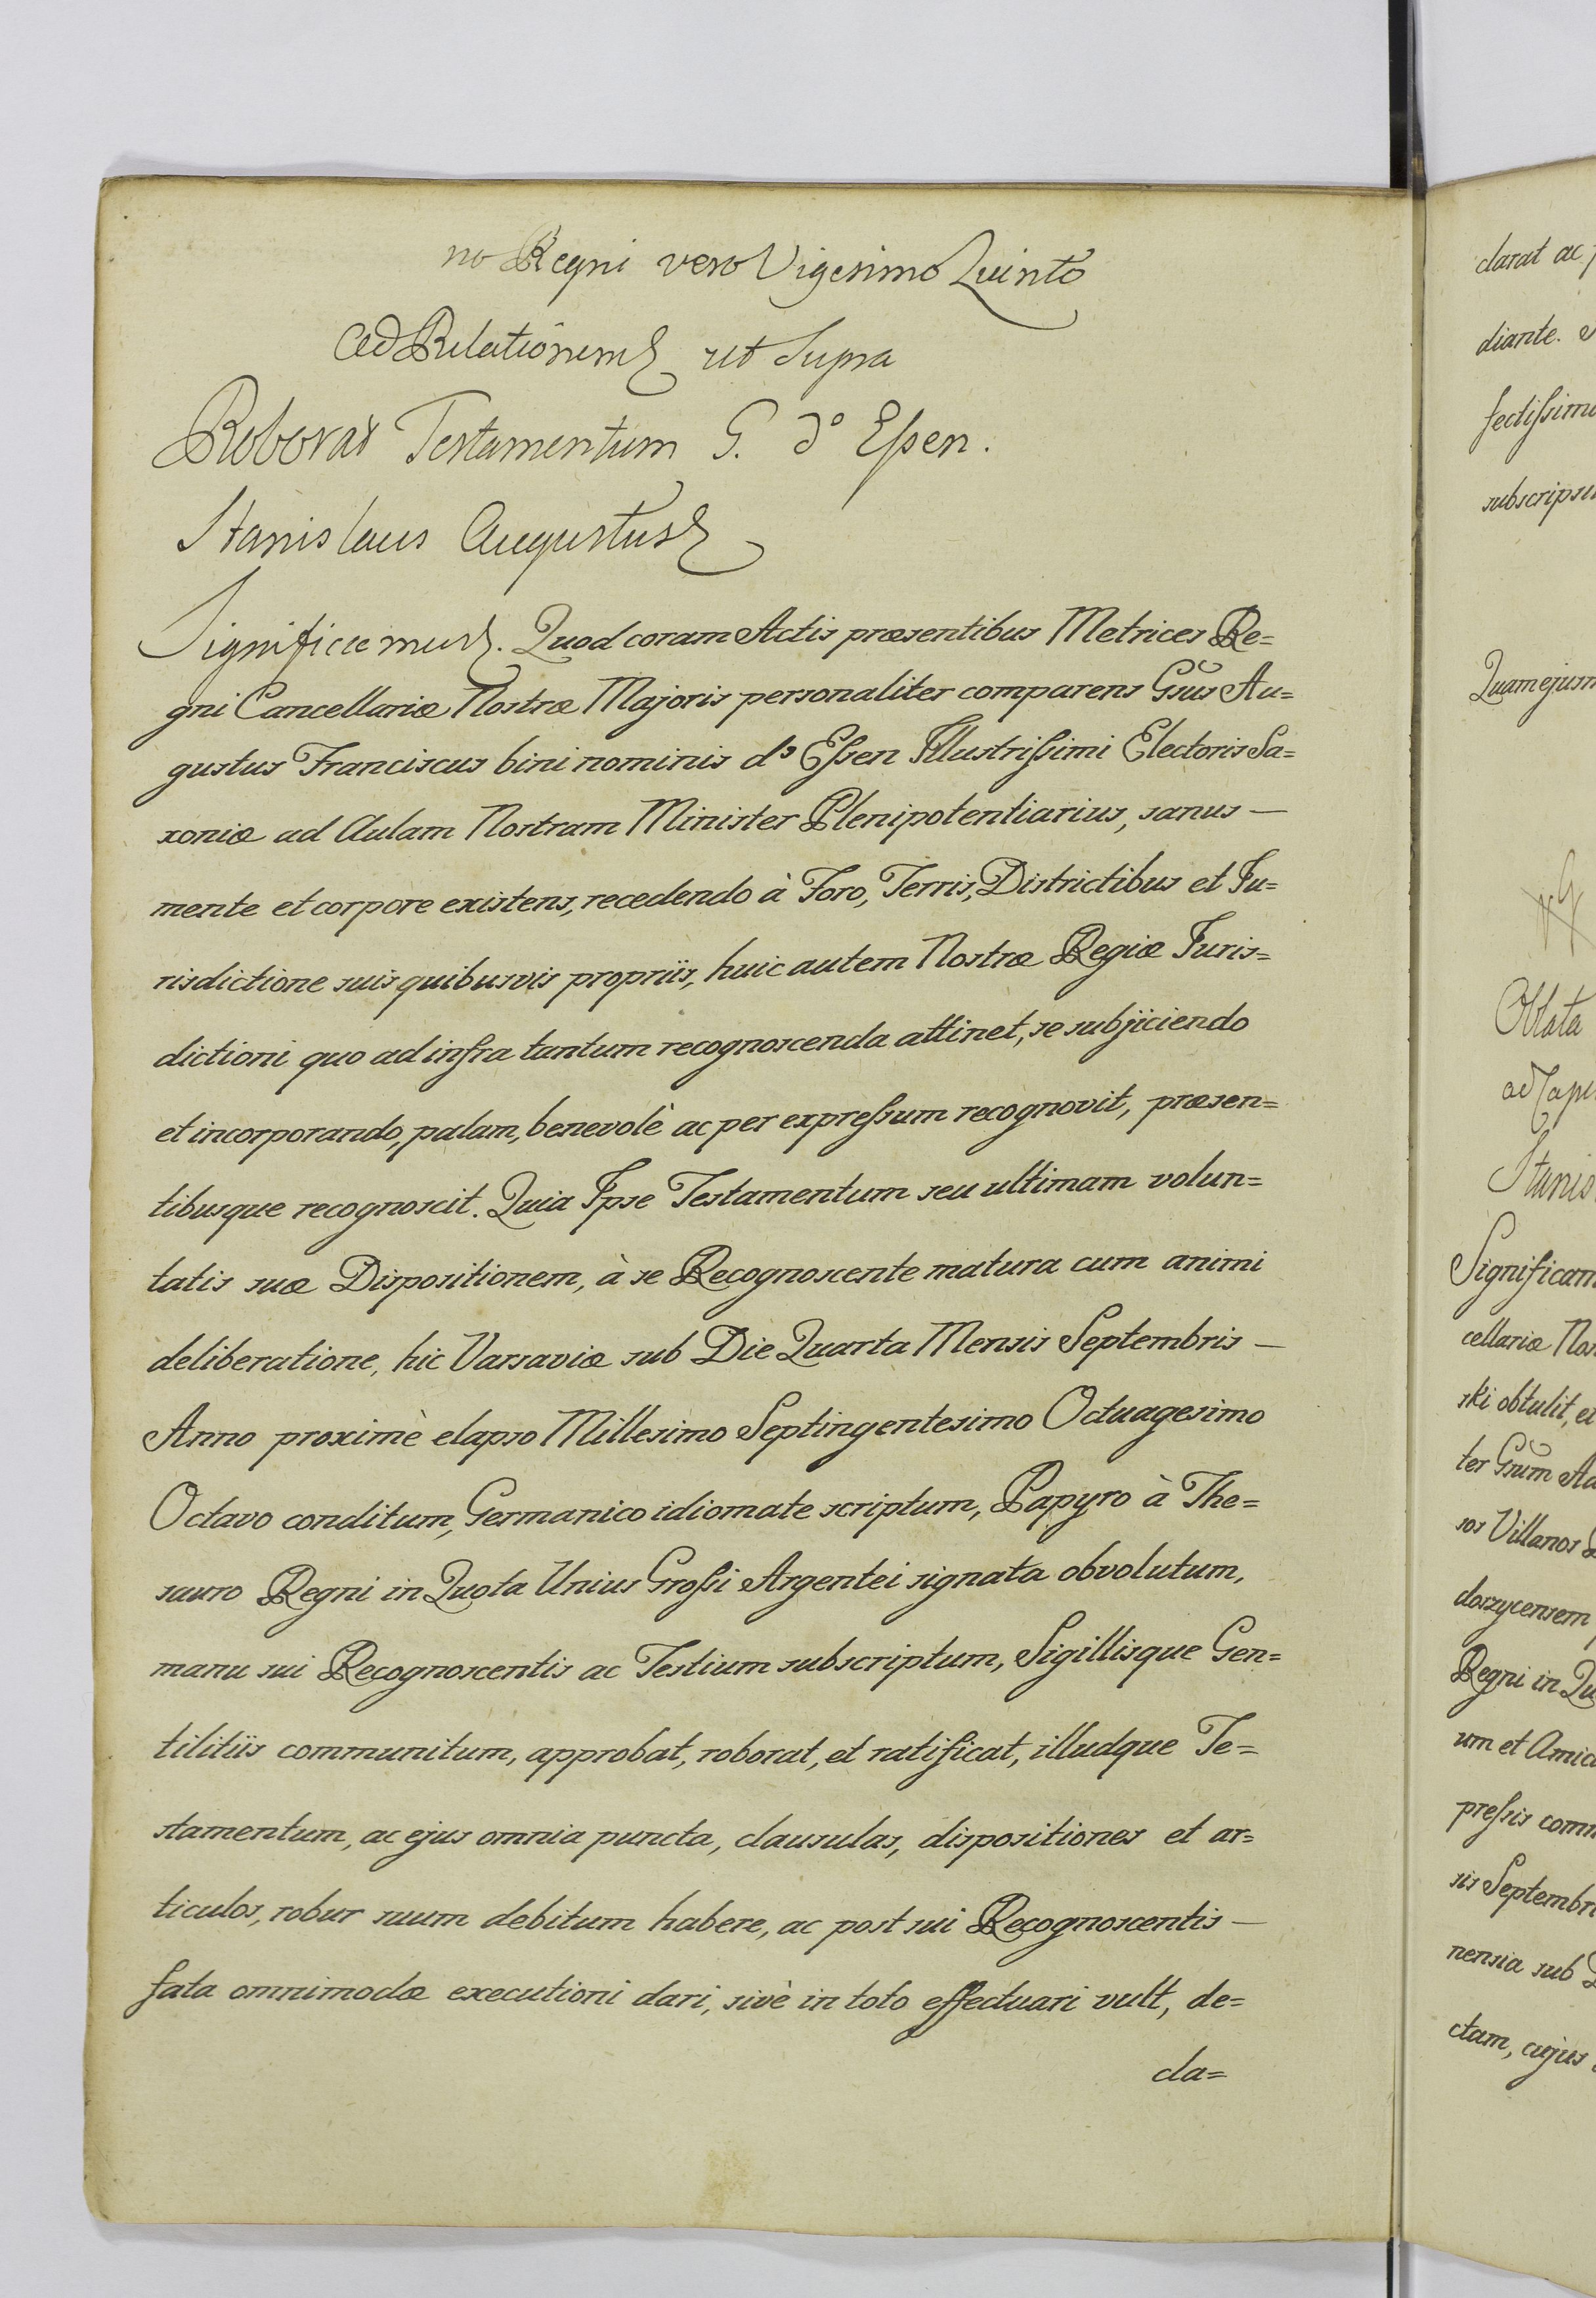 no Regni vero Vigesimo Quinto
Ad Relationem ut Supra
Roborat Testamentum G. d'o Eſsen.
Stanislaus Augustus
Significamus. Quod coram Actis præsentibus Metrices Re=
gni Cancellariæ Nostræ Majoris personaliter comparens Gsũs Au=
gustus Franciscus bini nominis d'o Eſsen Illustriſsimi Electoris Sa=
xoniæ ad Aulam Nostram Minister Plenipotentiarius, sanus —
mente et corpore existens, recedendo à Foro, Terris, Districtibus et Ju=
risdictione suis quibusvis propriis, huic autem Nostræ Regiæ Juris=
dictioni quo ad infra tantum recognoscenda attinet, se subjiciendo
et incorporando, palam, benevolè ac per expreſsum recognovit, præsen=
tibusque recognoscit. Quia Ipse Testamentum seu ultimam volun=
tatis suæ Dispositionem, à se Recognoscente matura cum animi
deliberatione, hic Varsaviæ sub Die Quarta Mensis Septembris —
Anno proximè elapso Millesimo Septingentesimo Octuagesimo
Octavo conditum, Germanico idiomate scriptum, Papyro à The=
sauro Regni in Quota Unius Groſsi Argentei signata obvolutum,
manu sui Recognoscentis ac Testium subscriptum, Sigillisque Gen=
tilitiis communitum, approbat, roborat, et ratificat, illudque Te=
stamentum, ac ejus omnia puncta, clausulas, dispositiones et ar=
ticulos, robur suum debitum habere, ac post sui Recognoscentis —
fata omnimodæ executioni dari, sivè in toto effectuari vult, de=
cla=
clarat ac
diante.
fectiſsim
subscrips
Quam ejusm
Oblata
ad Cape
Stanis
Significam
cellariæ Nos
ski obtulit, et
ter Gsũm Ad
sos Villanos
doszycensem
Regni in Qu
um et Amic
preſsis comm
sis Septembr
nensia sub
ctam, cujus